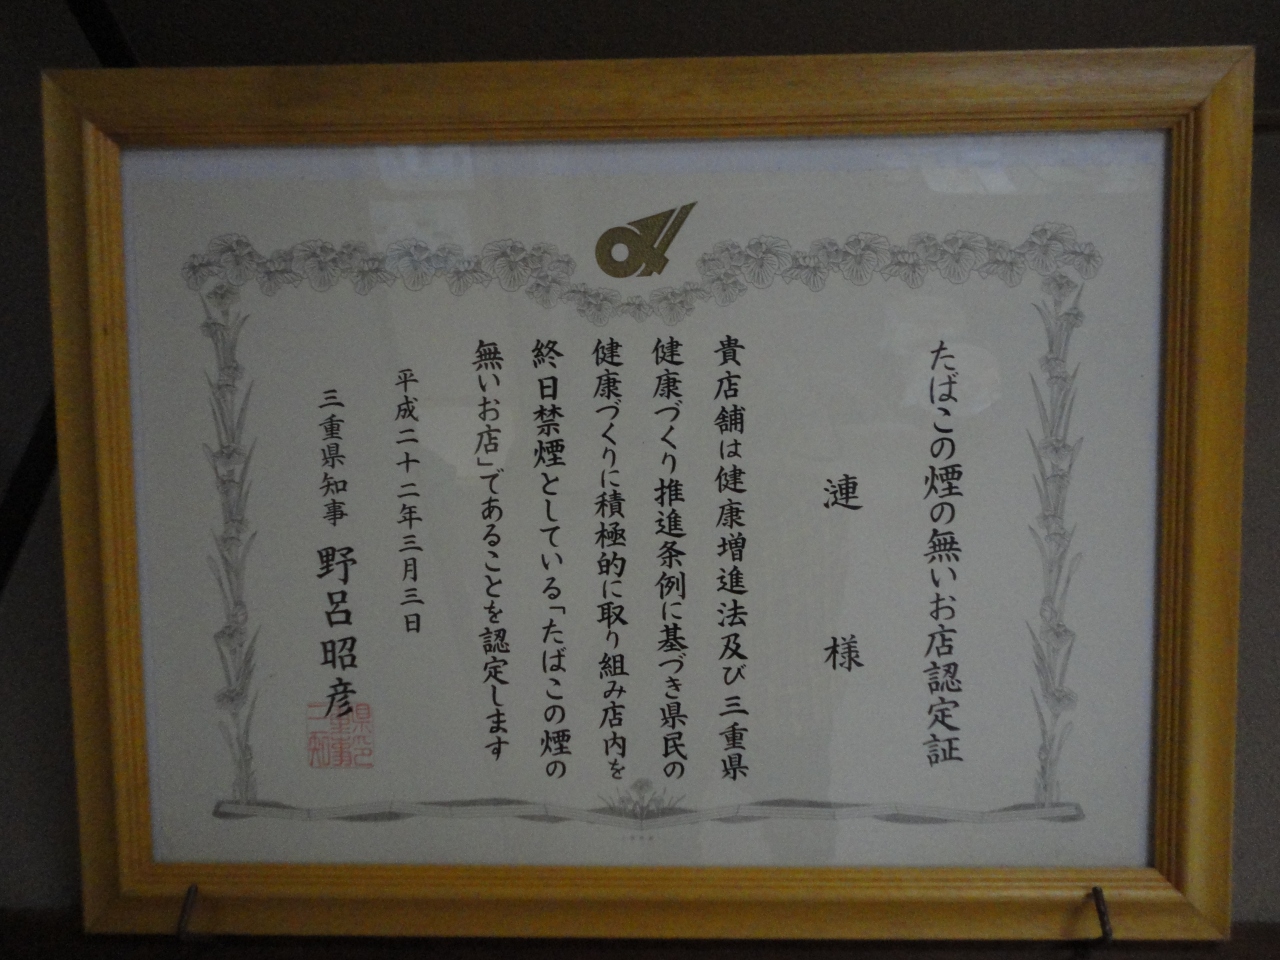 たばこの煙の無いお店認定証
漣 様
貴店舗は健康増進法及び三重県
健康づくり推進条例に基づき県民の
健康づくりに積極的に取り組み店内を
終日禁煙としている「たばこの煙の
無いお店」であることを認定します
平成二十二年三月三日
三重県知事 野呂昭彦